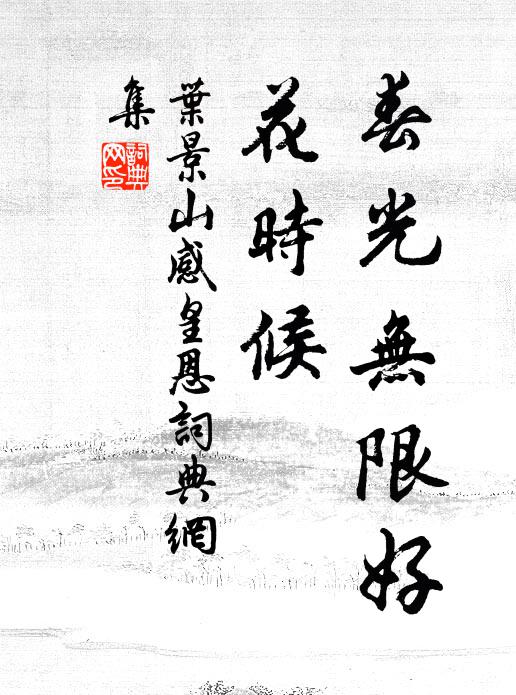 春光無限好
花時候
葉景山感皇恩詞典網
集
詞典
网印